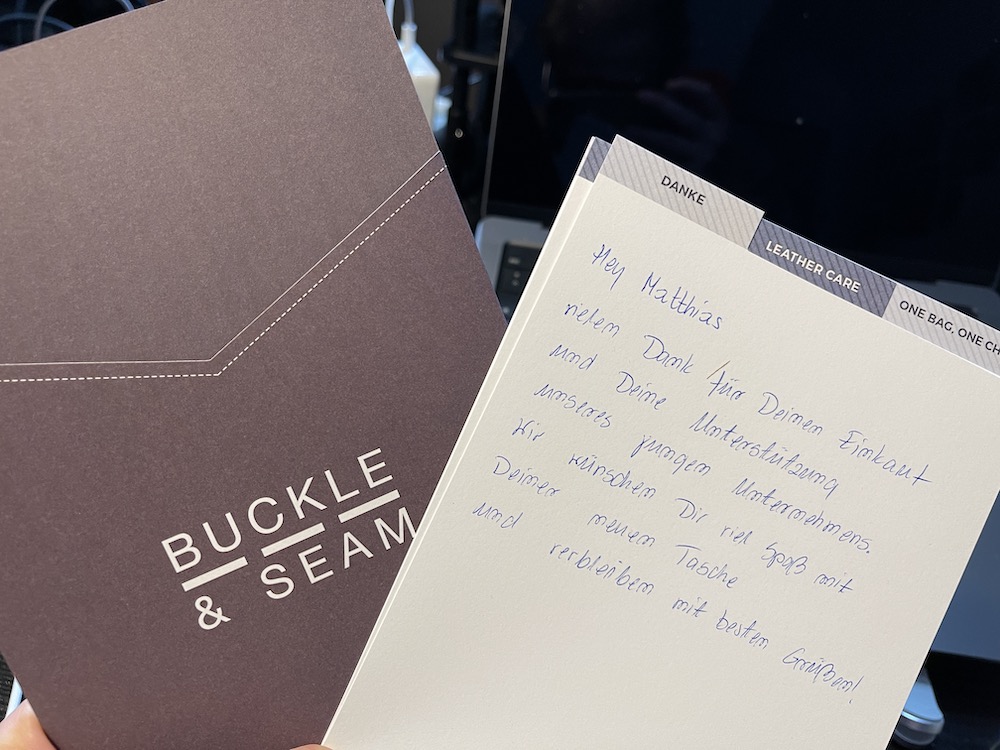 BUCKLE
& SEAM
DANKE
LEATHER CARE
ONE BAG, ONE CH
Hey Matthias
vielen Dank für Deinen Einkauf
und Deine Unterstützung
unseres jungen Unternehmens.
Wir wünschen Dir viel Spaß mit
Deiner neuen Tasche
und verbleiben mit besten Grüßen!